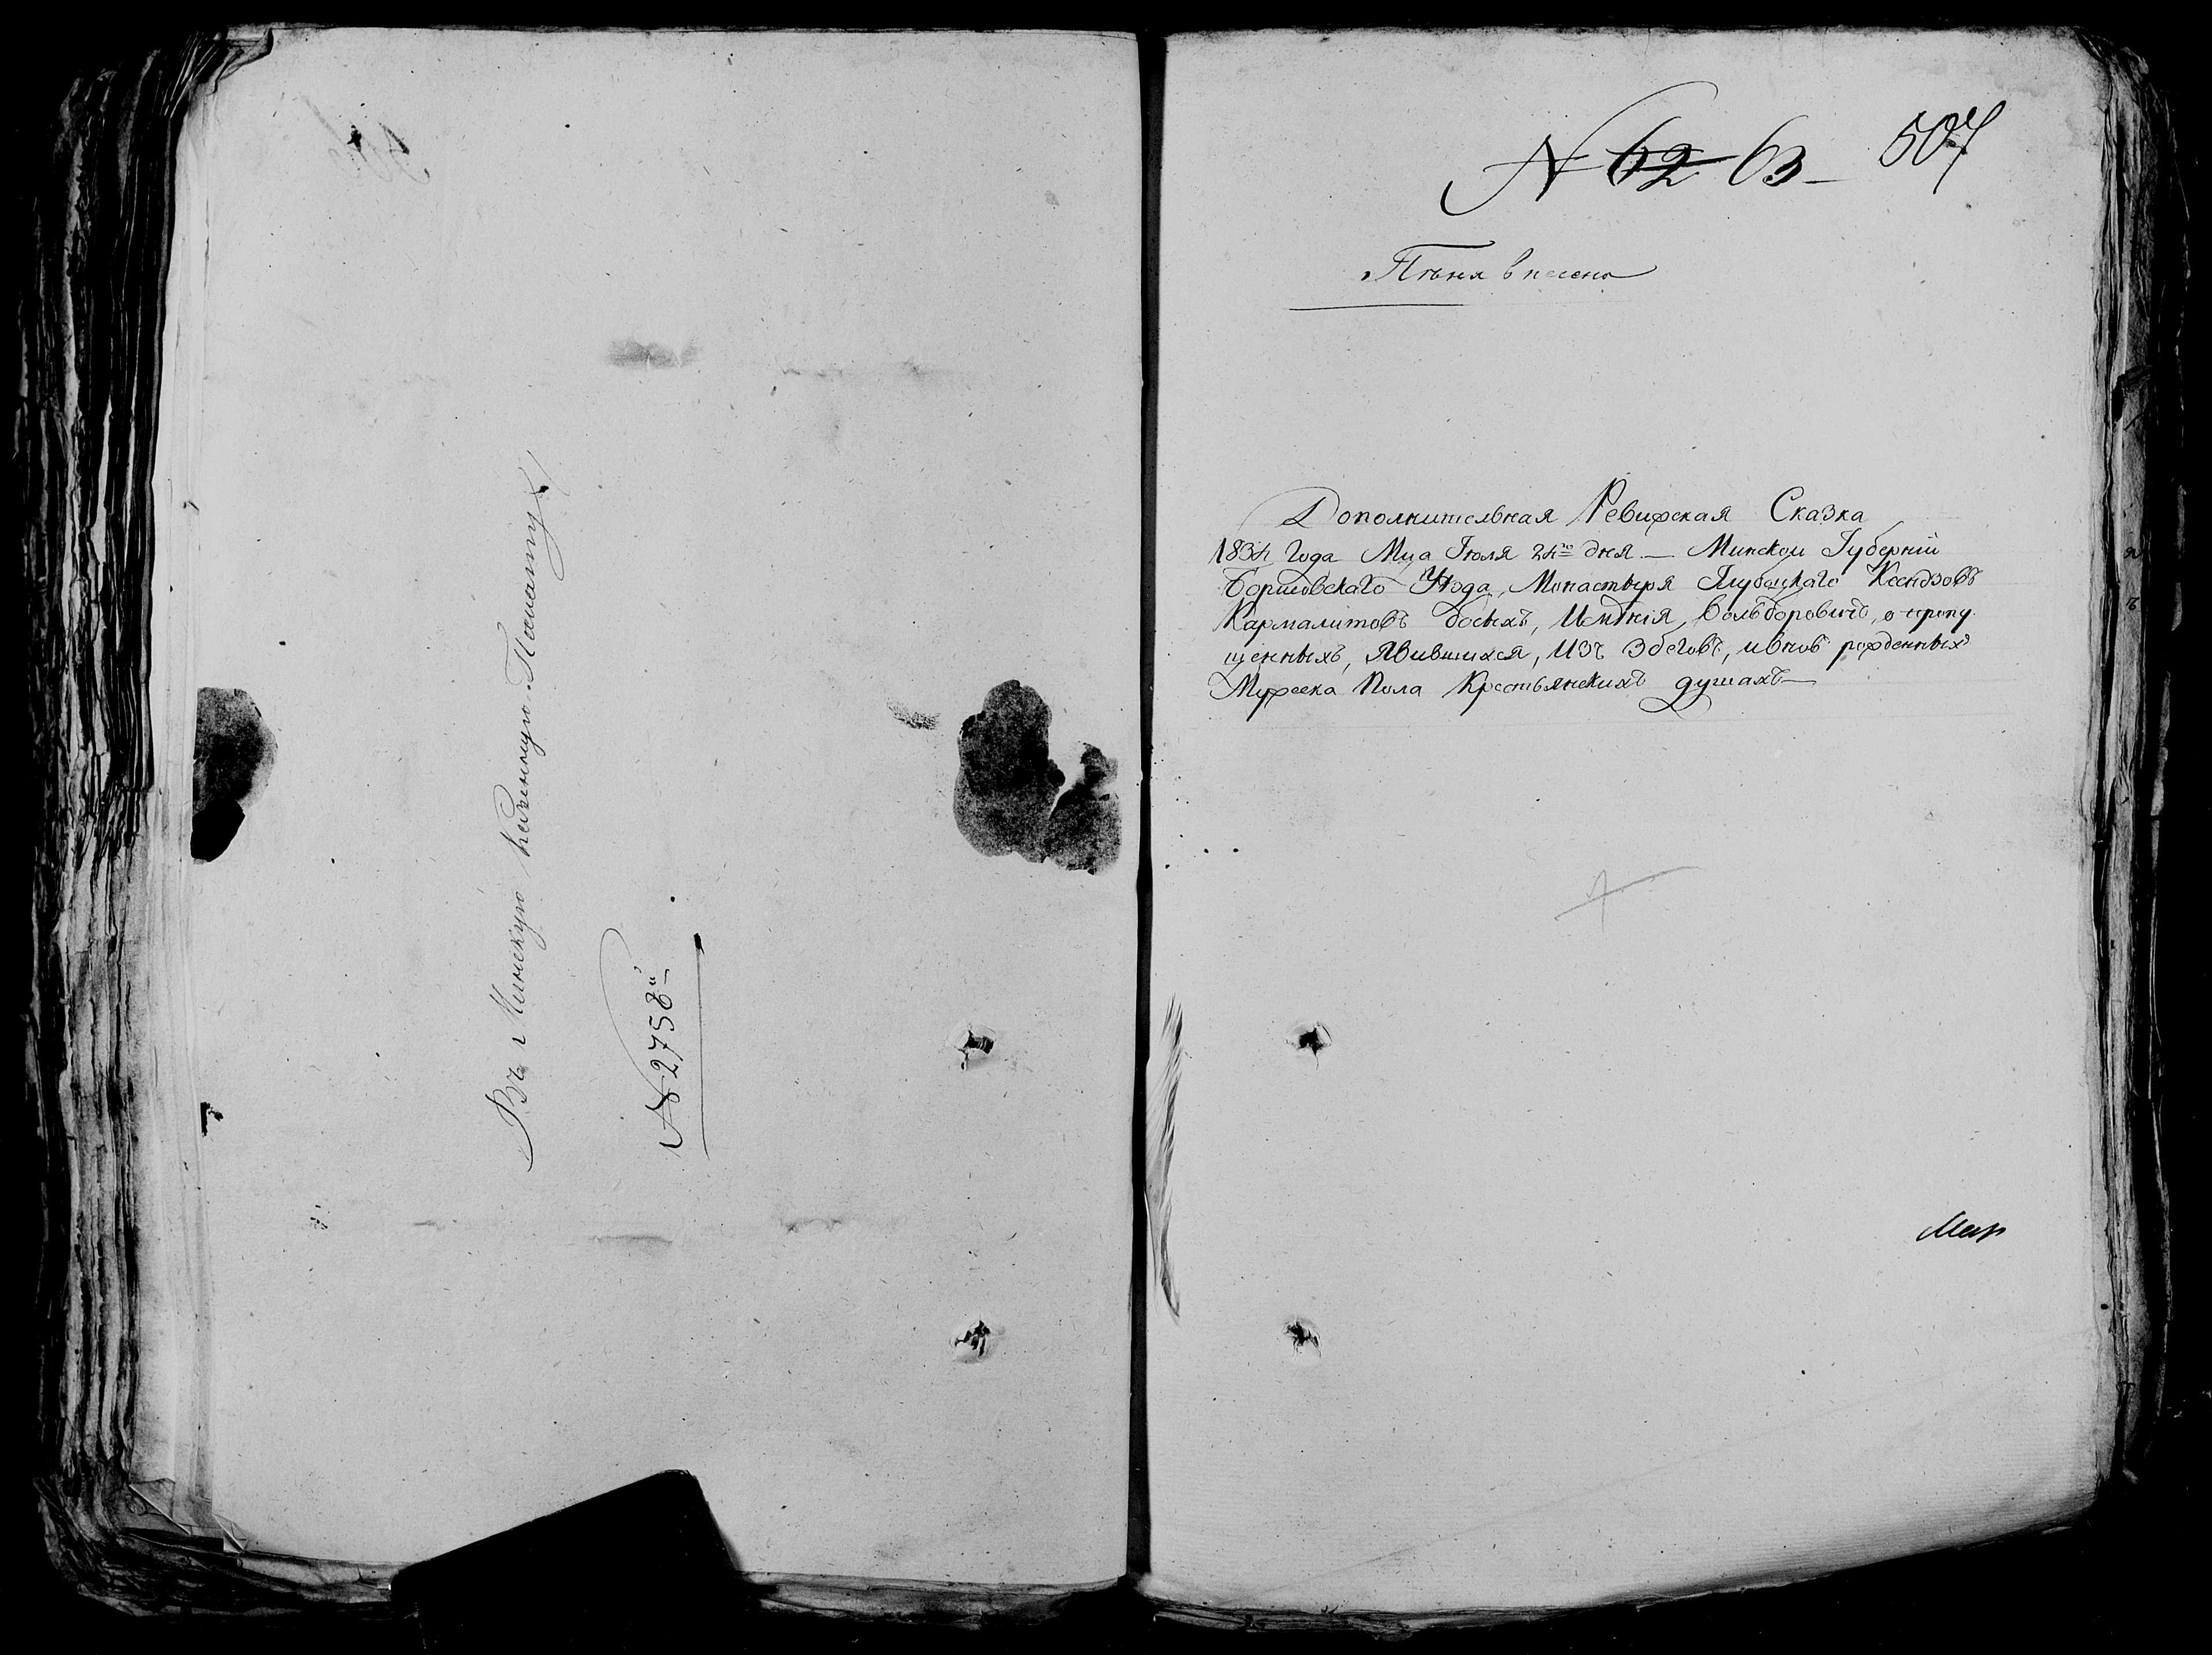 Въ Минскую Казенную Палату
№ 2758й
№ 62 63 507
Пѣня внесена
Дополнительная Ревизская Сказка
1834 Года Мца Іюля 24го дня — Минской Губерніи
Борисовскаго Уезда, Монастыря Глубоцкаго Ксендзовъ
Кармалитовъ босыхъ, Имѣнія Вольборовичъ, о пропу
щенныхъ, явившихся, изъ збеговъ, и вновь рожденныхъ
Мужеска Пола Крестьянскихъ душахъ —